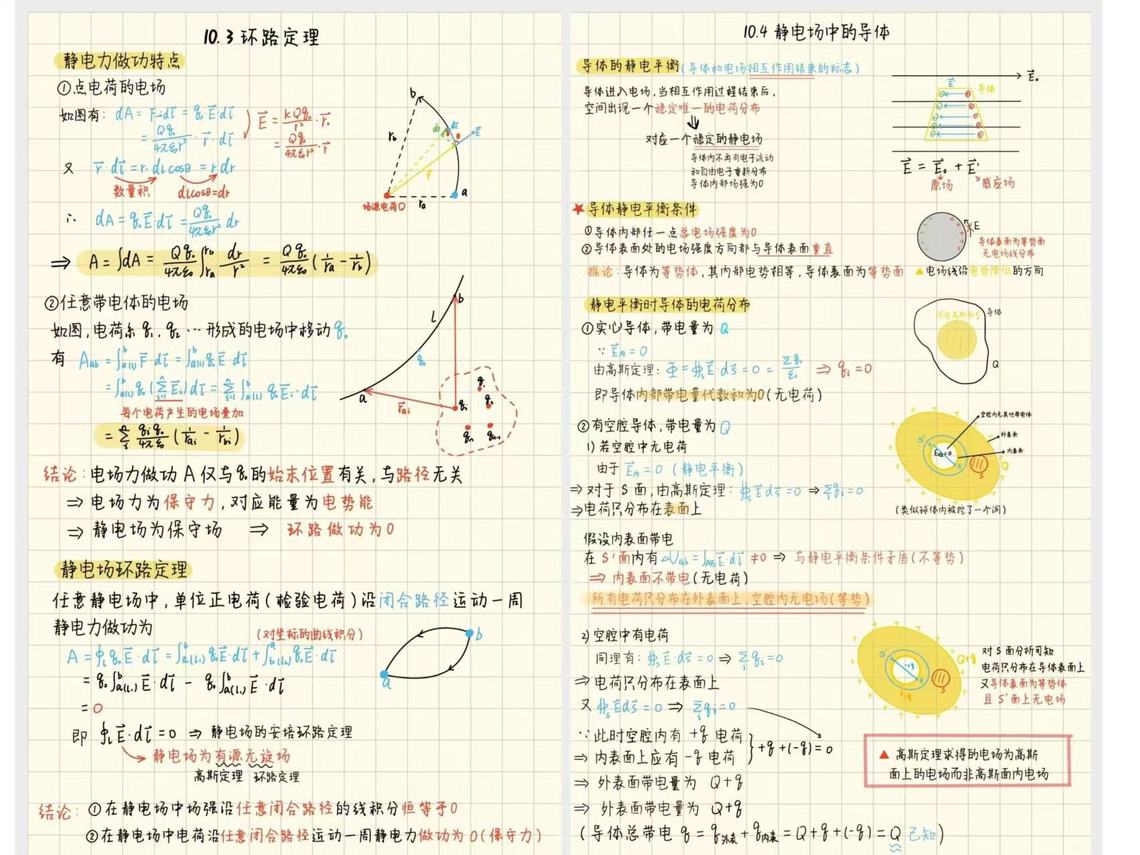 10.3 环路定理
静电力做功特点
①点电荷的电场
如图有: dA = F·dl = q₀E·dl
= Qq₀/4πε₀r³ · r·dl
E = kQq₀/r² · r₀
= Qq₀/4πε₀r³ · r
又 r·dl = r·dlcosθ = rdr
数量积 dlcosθ=dr
∴ dA = q₀E·dl = Qq₀/4πε₀r² dr
⇒ A = ∫dA = Qq₀/4πε₀ ∫ra^rb dr/r² = Qq₀/4πε₀ (1/ra - 1/rb)
b
r_b
场源电荷Q
r_a
a
②任意带电体的电场
如图,电荷系 q₁, q₂ … 形成的电场中移动q₀
有 Aab = ∫a(L)^b F·dl = ∫a(L)^b q₀E·dl
= ∫a(L)^b q₀(ΣEi)dl = Σ∫a(L)^b q₀Ei·dl
每个电荷产生的电场叠加
= Σ qiq₀/4πε₀ (1/rai - 1/rbi)
b
L
q₀
a
rai
结论: 电场力做功 A 仅与q₀的始末位置有关,与路径无关
⇒ 电场力为保守力,对应能量为电势能
⇒ 静电场为保守场 ⇒ 环路做功为0
静电场环路定理
任意静电场中,单位正电荷(检验电荷)沿闭合路径运动一周
静电力做功为
(对坐标的曲线积分)
A = ∮L q₀E·dl = ∫a(L₁)^b q₀E·dl + ∫b(L₂)^a q₀E·dl
= q₀∫a(L₁)^b E·dl - q₀∫a(L₂)^b E·dl
= 0
b
a
即 ∮L E·dl = 0 ⇒ 静电场的安培环路定理
静电场为有源无旋场
高斯定理 环路定理
结论: ①在静电场中场强沿任意闭合路径的线积分恒等于0
②在静电场中电荷沿任意闭合路径运动一周静电力做功为0(保守力)
10.4 静电场中的导体
导体的静电平衡(导体和电场相互作用结束的标志)
导体进入电场,当相互作用过程结束后,
空间出现一个稳定唯一的电荷分布
对应一个稳定的静电场
导体内不再有电子流动
和自由电子重新分布
导体内部场强为0
E₀
E'
导体
E = E₀ + E'
原场 感应场
★导体静电平衡条件
①导体内部任一点总电场强度为0
②导体表面处的电场强度方向都与导体表面垂直
推论: 导体为等势体,其内部电势相等,导体表面为等势面
E
导体表面为等势面
无电场线分布
▲电场线沿电势降低的方向
静电平衡时导体的电荷分布
①实心导体,带电量为 Q
∵ E内 = 0
由高斯定理: Φ = ∮s E·ds = 0 = Σqi/ε₀ ⇒ qi = 0
即导体内部带电量代数和为0(无电荷)
闭合高斯面S
导体
Q
②有空腔导体,带电量为Q
1)若空腔中无电荷
由于 E内 = 0 (静电平衡)
⇒对于S面,由高斯定理: ∮s E·ds = 0 ⇒ Σqi = 0
⇒电荷只分布在表面上
空腔内无其他带电体
外表面
内表面
S'
E内=0
S
Q
(类似球体内被挖了一个洞)
假设内表面带电
在S'面内有 ΔUab = ∫AB E·dl ≠ 0 ⇒ 与静电平衡条件矛盾(不等势)
⇒ 内表面不带电(无电荷)
所有电荷只分布在外表面上,空腔内无电场(等势)
2)空腔中有电荷
同理有: ∮s E·ds = 0 ⇒ Σqi = 0
⇒电荷只分布在表面上
又 ∮s E·ds = 0 ⇒ Σqi = 0
∵ 此时空腔内有 +q 电荷
⇒ 内表面上应有 -q 电荷
+q + (-q) = 0
⇒ 外表面带电量为 Q+q
⇒ 外表面带电量为 Q+q
(导体总带电 q = q外表 + q内表 = Q+q+(-q) = Q 已知)
S'
S
Q+q
对S面分析可知
电荷只分布在导体表面上
又导体表面为等势体
且S'面上无电场
▲ 高斯定理求得的电场为高斯
面上的电场而非高斯面内电场